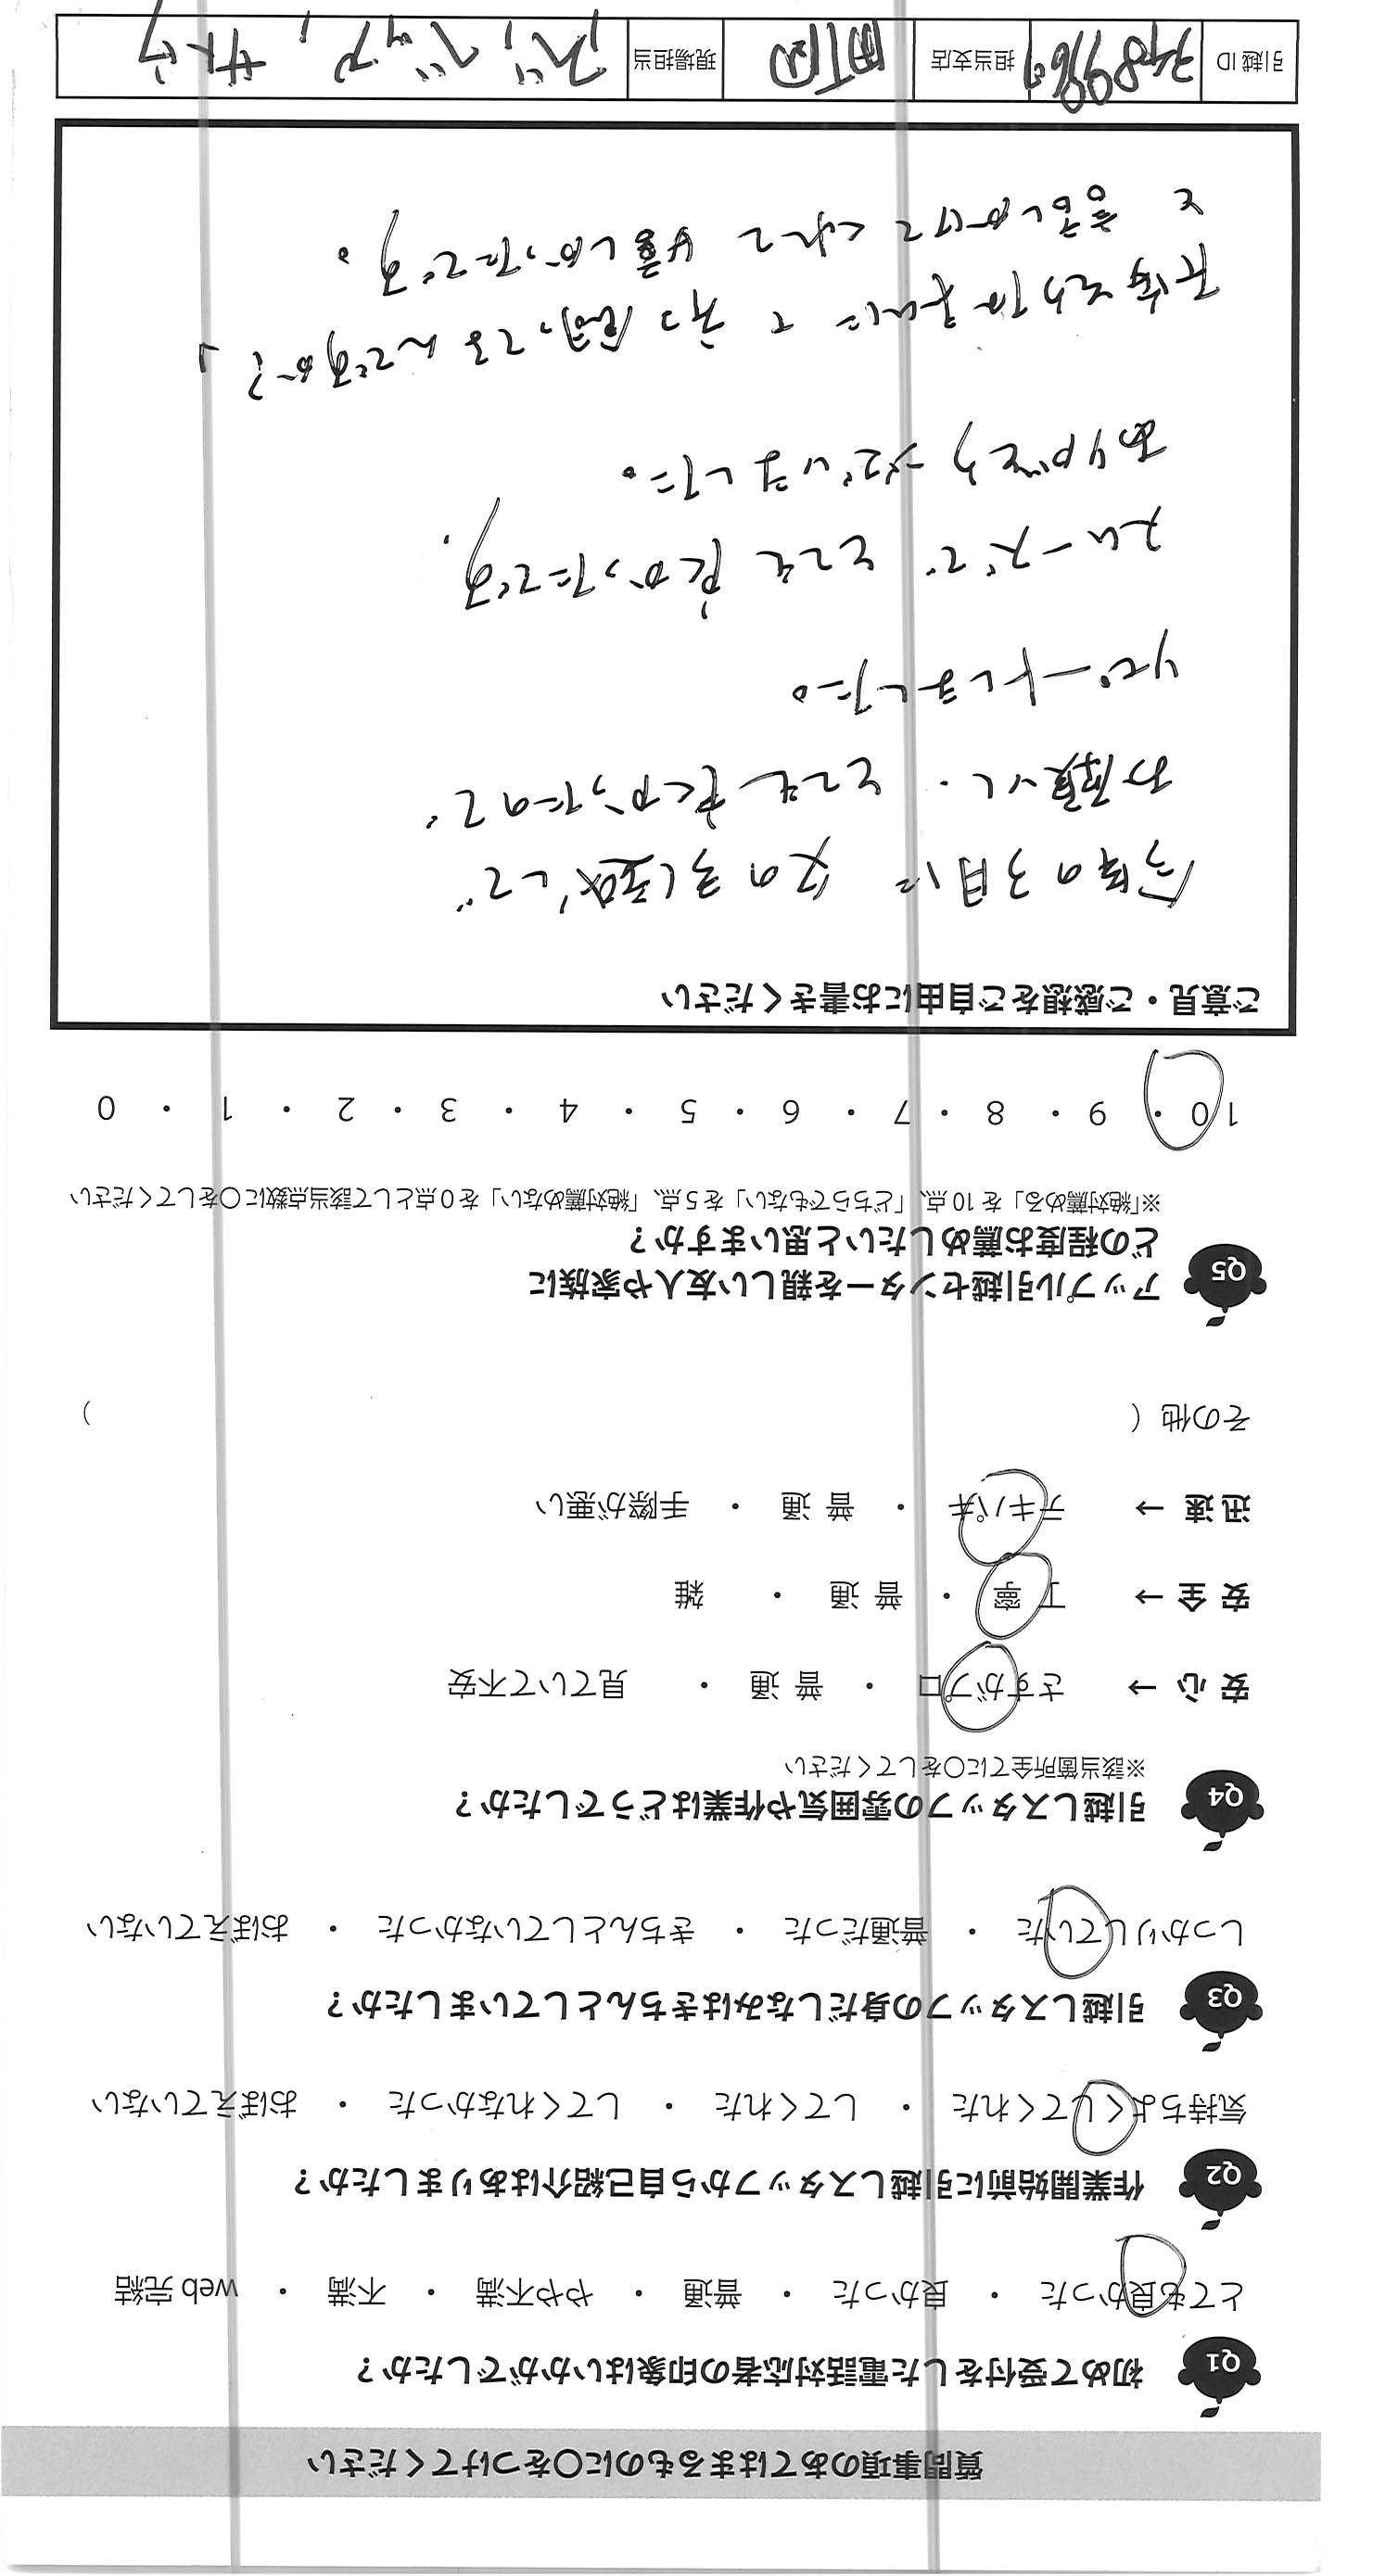 質問事項のあてはまるものに○をつけてください
Q1 初めて受付をした電話対応者の印象はいかがでしたか?
とても良かった ・ 良かった ・ 普通 ・ やや不満 ・ 不満 ・ web 完結
Q2 作業開始前に引越しスタッフから自己紹介はありましたか?
気持ちよくしてくれた ・ してくれた ・ してくれなかった ・ おぼえていない
Q3 引越しスタッフの身だしなみはきちんとしていましたか?
しっかりしていた ・ 普通だった ・ きちんとしていなかった ・ おぼえていない
Q4 引越しスタッフの雰囲気や作業はどうでしたか?
※該当箇所全てに○をしてください
安 心 → さすがプロ ・ 普 通 ・ 見ていて不安
安 全 → 丁 寧 ・ 普 通 ・ 雑
迅 速 → テキパキ ・ 普 通 ・ 手際が悪い
その他 ( )
Q5 アップル引越センターを親しい友人や家族に
どの程度お薦めしたいと思いますか?
※「絶対薦める」を 10 点、「どちらでもない」を 5 点、「絶対薦めない」を 0 点として該当点数に○をしてください
10 ・ 9 ・ 8 ・ 7 ・ 6 ・ 5 ・ 4 ・ 3 ・ 2 ・ 1 ・ 0
ご意見・ご感想をご自由にお書きください
今年の3月に 父の引越しで
お願いし、とても良かったので
リピートしました。
スムーズで とても良かったです。
ありがとうございました。
て 何 ってるんですか?」
と 話しかけてくれて 嬉しかったです。
引越 ID 担当支店 町田 現場担当